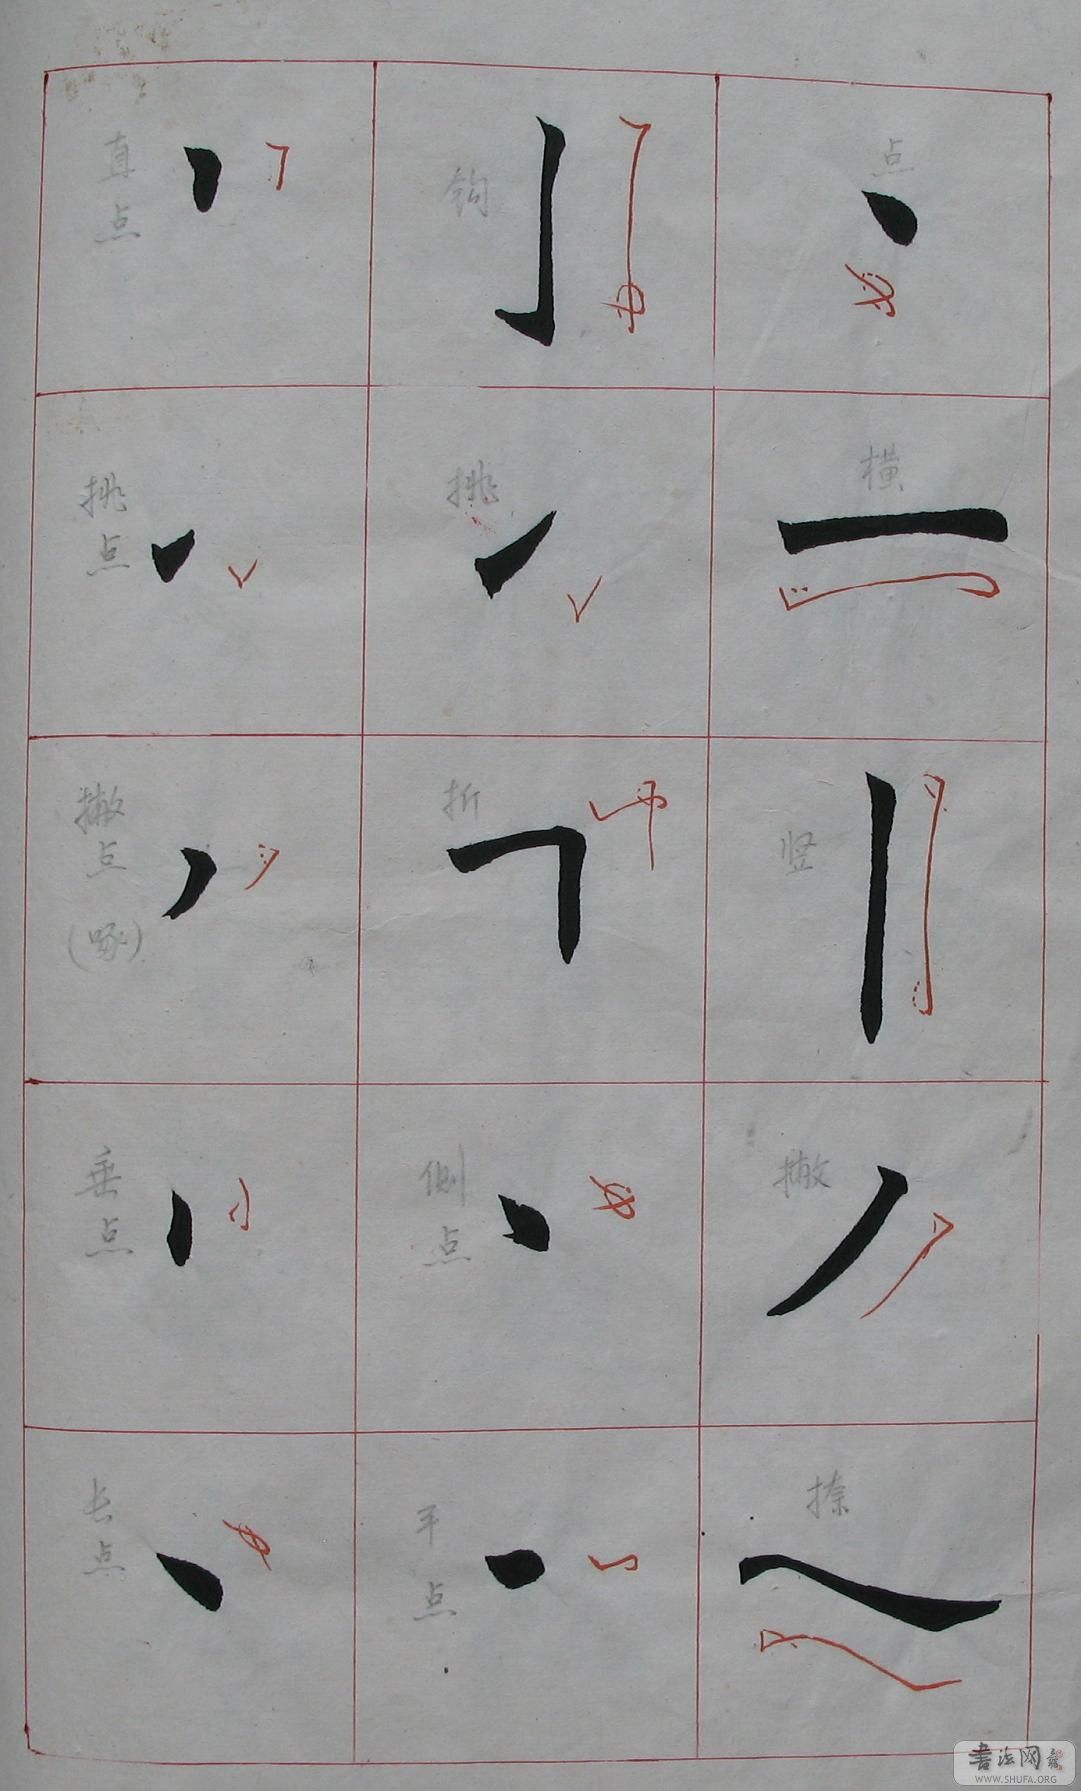 点
横
竖
撇
捺
钩
挑
折
侧点
平点
直点
挑点
撇点
(啄)
垂点
长点
書法网
WWW.SHUFA.ORG